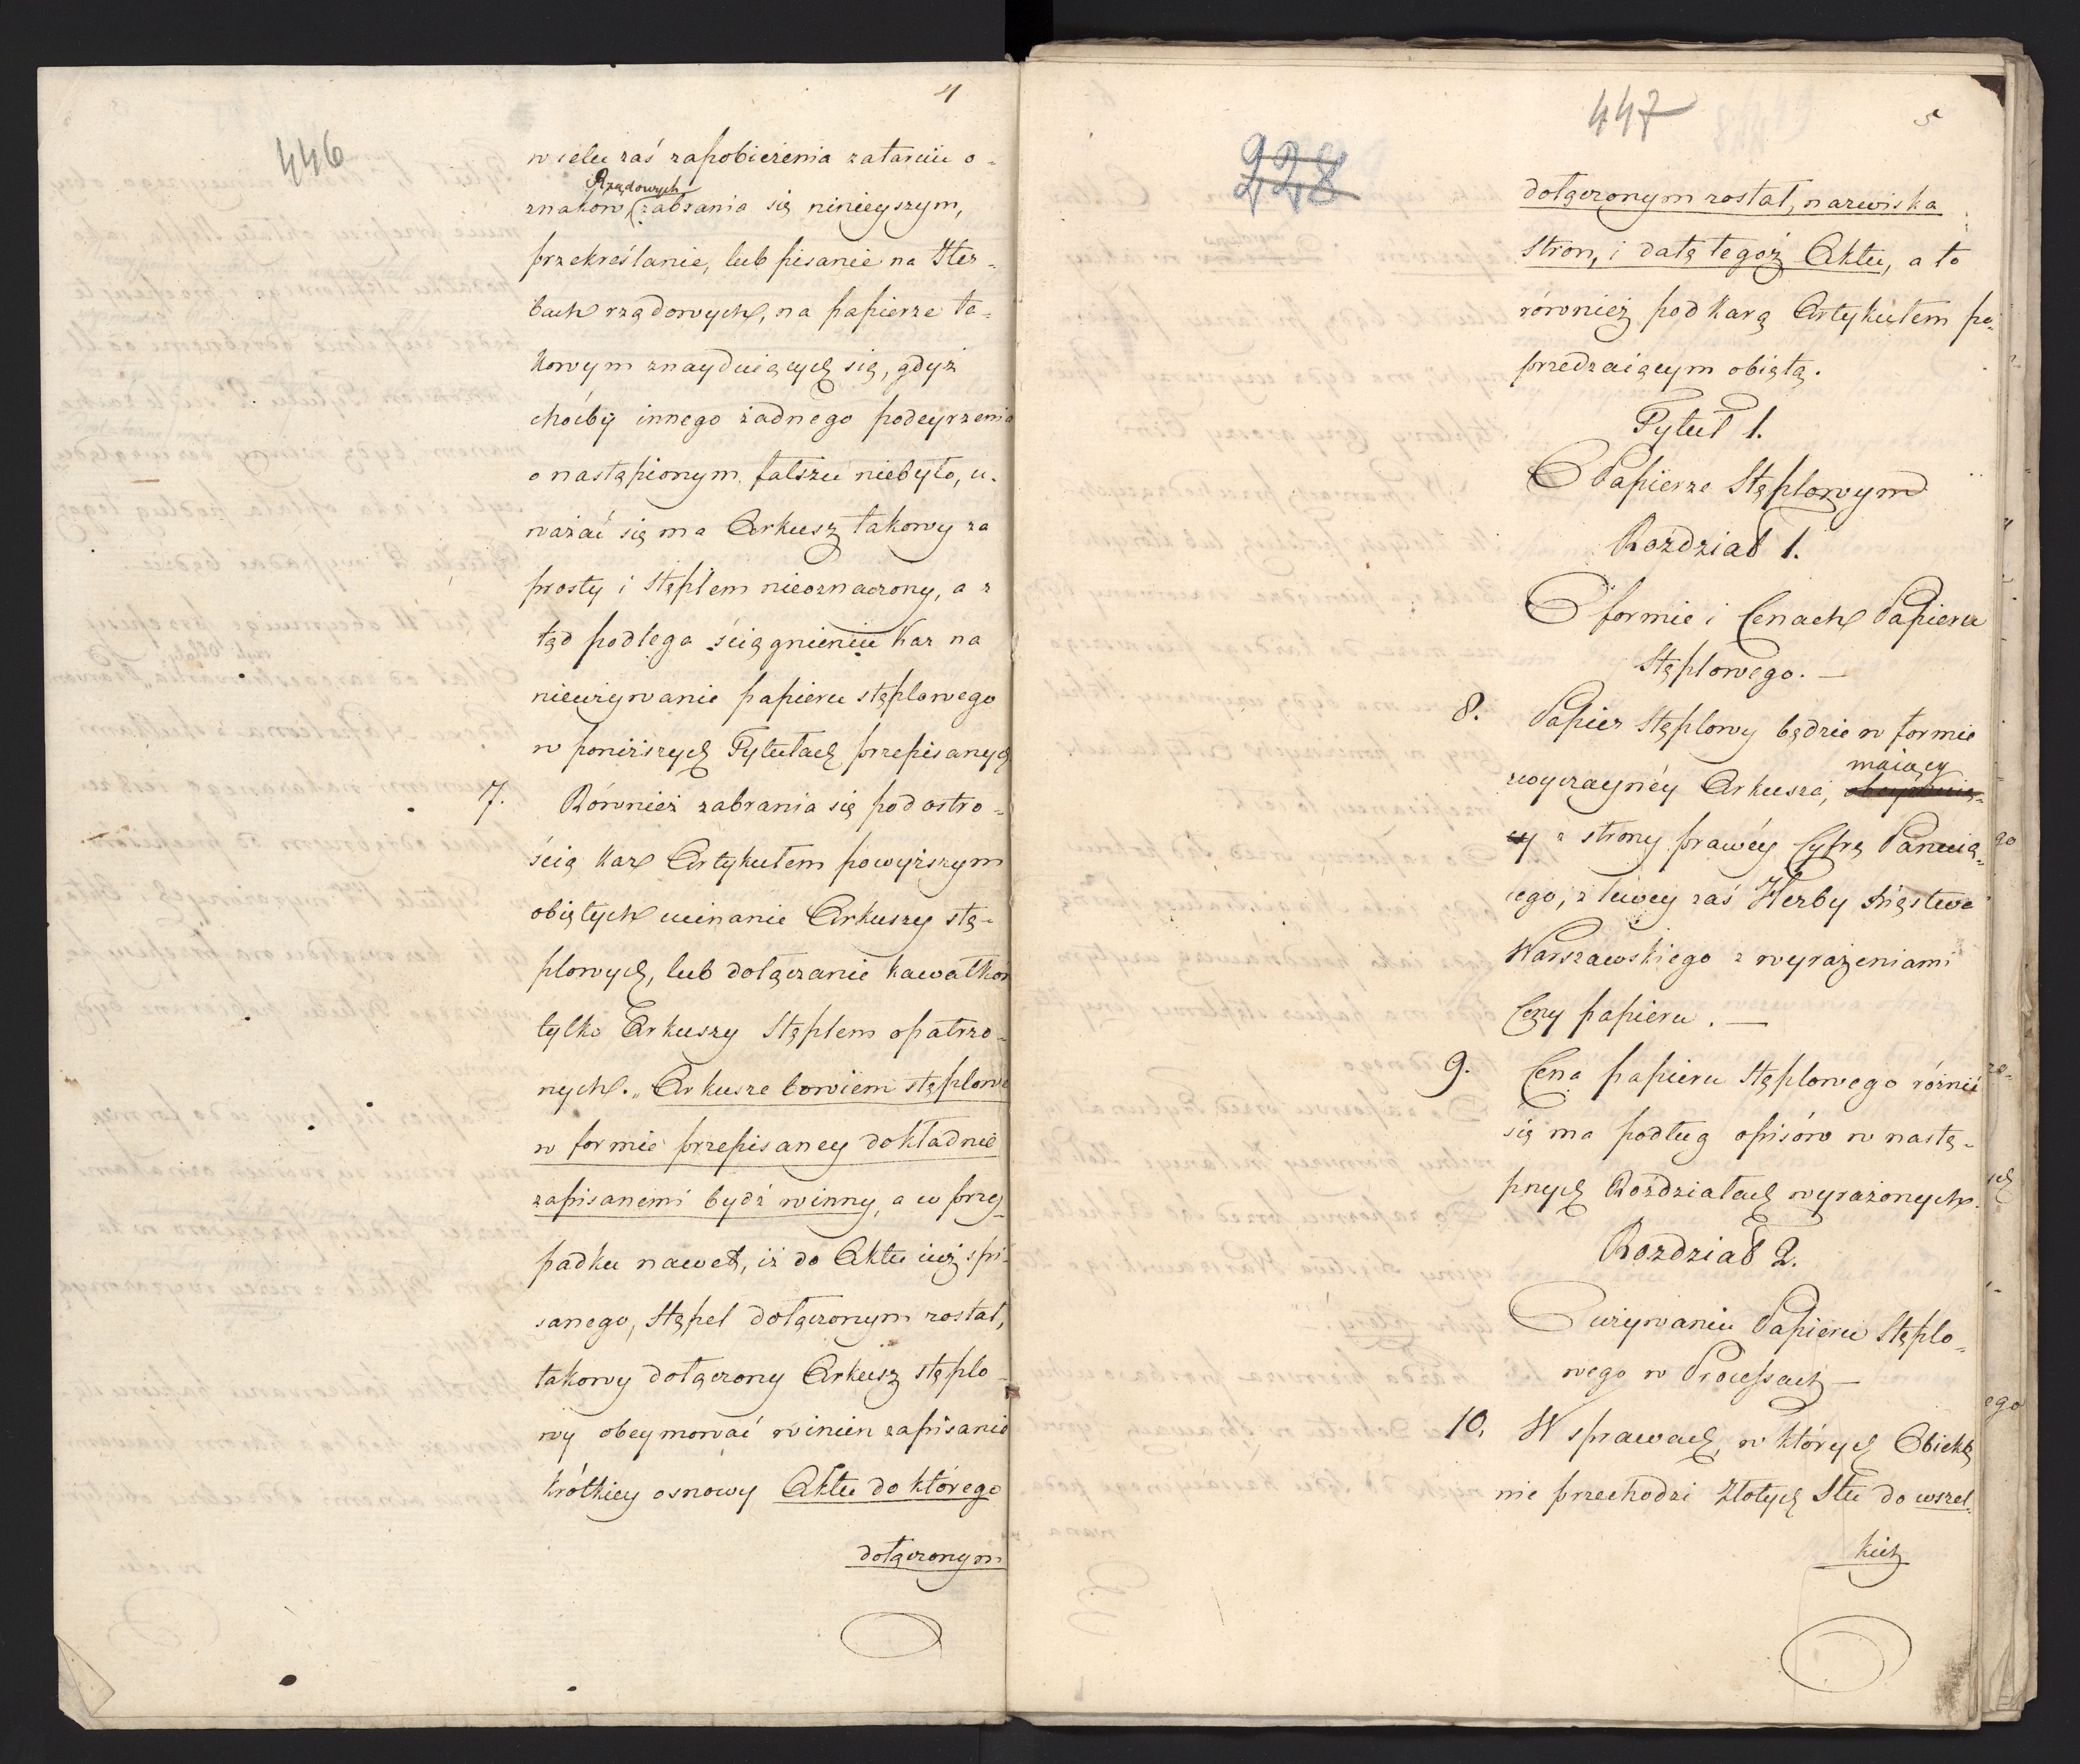 4
446
w celu zaś zapobieżenia zatarciu o-
Rządowych
znaków zabrania się ninieyszym,
przekreślanie, lub pisanie na Her-
bach rządowych, na papierze ta-
kowym znayduiących się, gdyż
choćby innego żadnego podeyrzenia
o nastąpionym fałszu niebyło, u-
ważać się ma Arkusz takowy za
prosty i Stęplem nieoznaczony, a z
tąd podlega ściągnieniu Kar na
nieużywanie papieru stęplowego
w poniższych Tytułach przepisanych
7. Również zabrania się pod ostro-
ścią Kar Artykułem powyższym
obiętych ucinanie Arkuszy stę-
plowych, lub dołączanie kawałków
tylko Arkuszy Stęplem opatrzo-
nych. „Arkusze bowiem stęplowe
w formie przepisaney dokładnie
zapisanemi bydź winny, a w przy-
padku nawet, iż do Aktu iuż spi-
sanego, Stępel dołączonym został,
takowy dołączony Arkusz stęplo-
wy obeymować winien zapisanie
krótkiey osnowy Aktu do którego
dołączonym
5
447
228
dołączonym został, nazwiska
Stron, i datę tegoż Aktu, a to
również pod karą Artykułem po-
przedzaiącym obiętą.
Tytuł 1.
O Papierze Stęplowym
Rozdział 1.
O formie i Cenach Papieru
Stęplowego. —
8. Papier Stęplowy będzie w formie
maiący
zwyczayney Arkusza,
cy z strony prawéy Cyfrę Panuią-
cego, z lewey zaś Herby Xięstwa
Warszawskiego z wyrażeniami
Ceny papieru. —
9. Cena papieru Stęplowego różnić
się ma podług opisów w nastę-
pnych Rozdziałach wyrażonych.
Rozdział 2.
O używaniu Papieru Stęplo-
wego w Processach —
10. W sprawach, w których Obiekt
nie przechodzi Złotych Stu do wszel-
kich